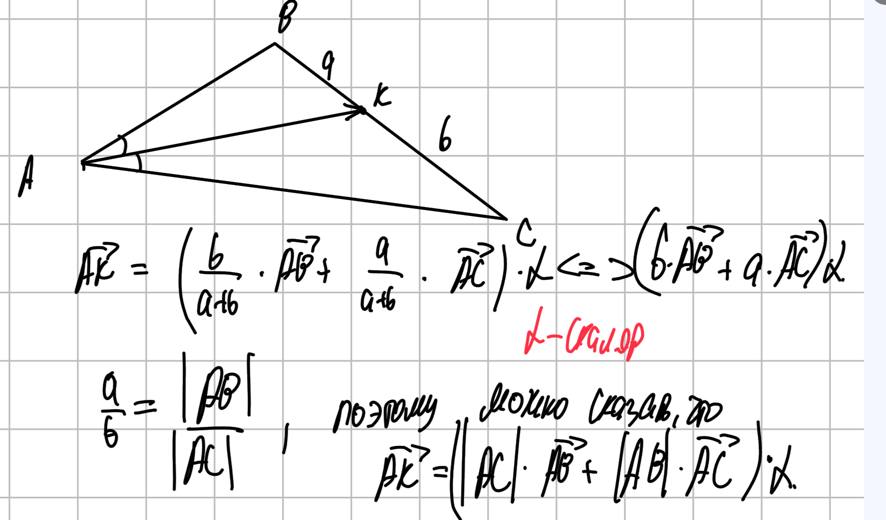 B
a
K
b
A
C
\vec{AK} = \left( \frac{b}{a+b} \cdot \vec{AB} + \frac{a}{a+b} \cdot \vec{AC} \right) \cdot \alpha <=> (b \cdot \vec{AB} + a \cdot \vec{AC}) \alpha
α - скаляр
\frac{a}{b} = \frac{|AB|}{|AC|}, поэтому можно сказать, что
\vec{AK} = (|AC| \cdot \vec{AB} + |AB| \cdot \vec{AC}) \cdot \alpha.